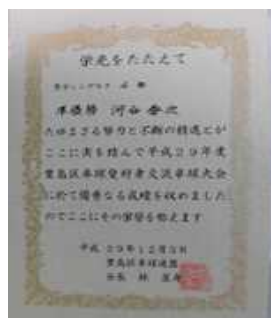 栄光をたたえて
男子シングルス
準優勝 河谷
たゆまざる努力と不断の精進とが
ここに実を結んで平成29年度
豊島区卓球愛好者交流卓球大会
に於て優秀なる成績を収めました
のでここにその栄誉を称えます
平成29年12月3日
豊島区卓球連盟
会長 林